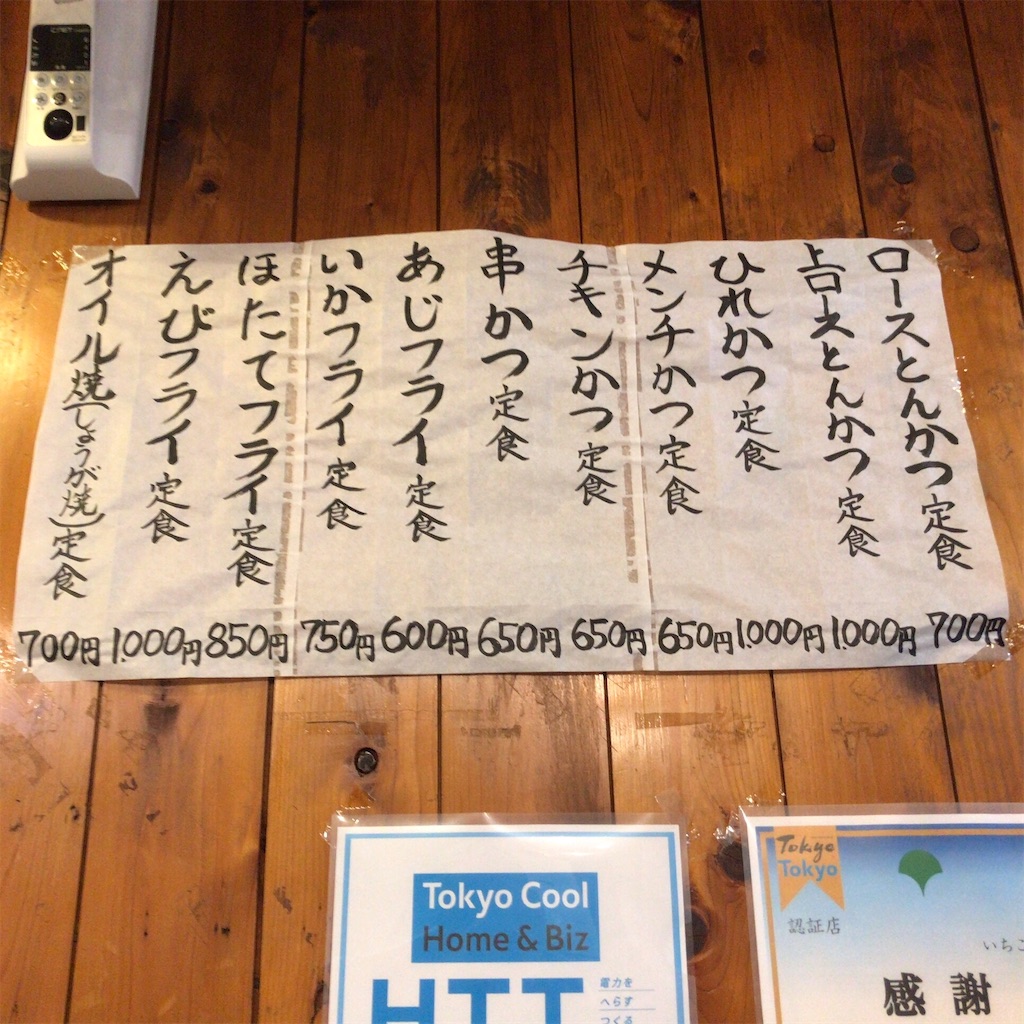 ロースとんかつ定食 700円
上ロースとんかつ定食 1.000円
ひれかつ定食 1.000円
メンチかつ定食 650円
チキンかつ定食 650円
串かつ定食 650円
あじフライ定食 600円
いかフライ定食 750円
ほたてフライ定食 850円
えびフライ定食 1.000円
オイル焼(しょうが焼)定食 700円
Tokyo Cool
Home & Biz
HTT
電力を
へらす
つくる
Tokyo
Tokyo
認証店
いちこ
感謝